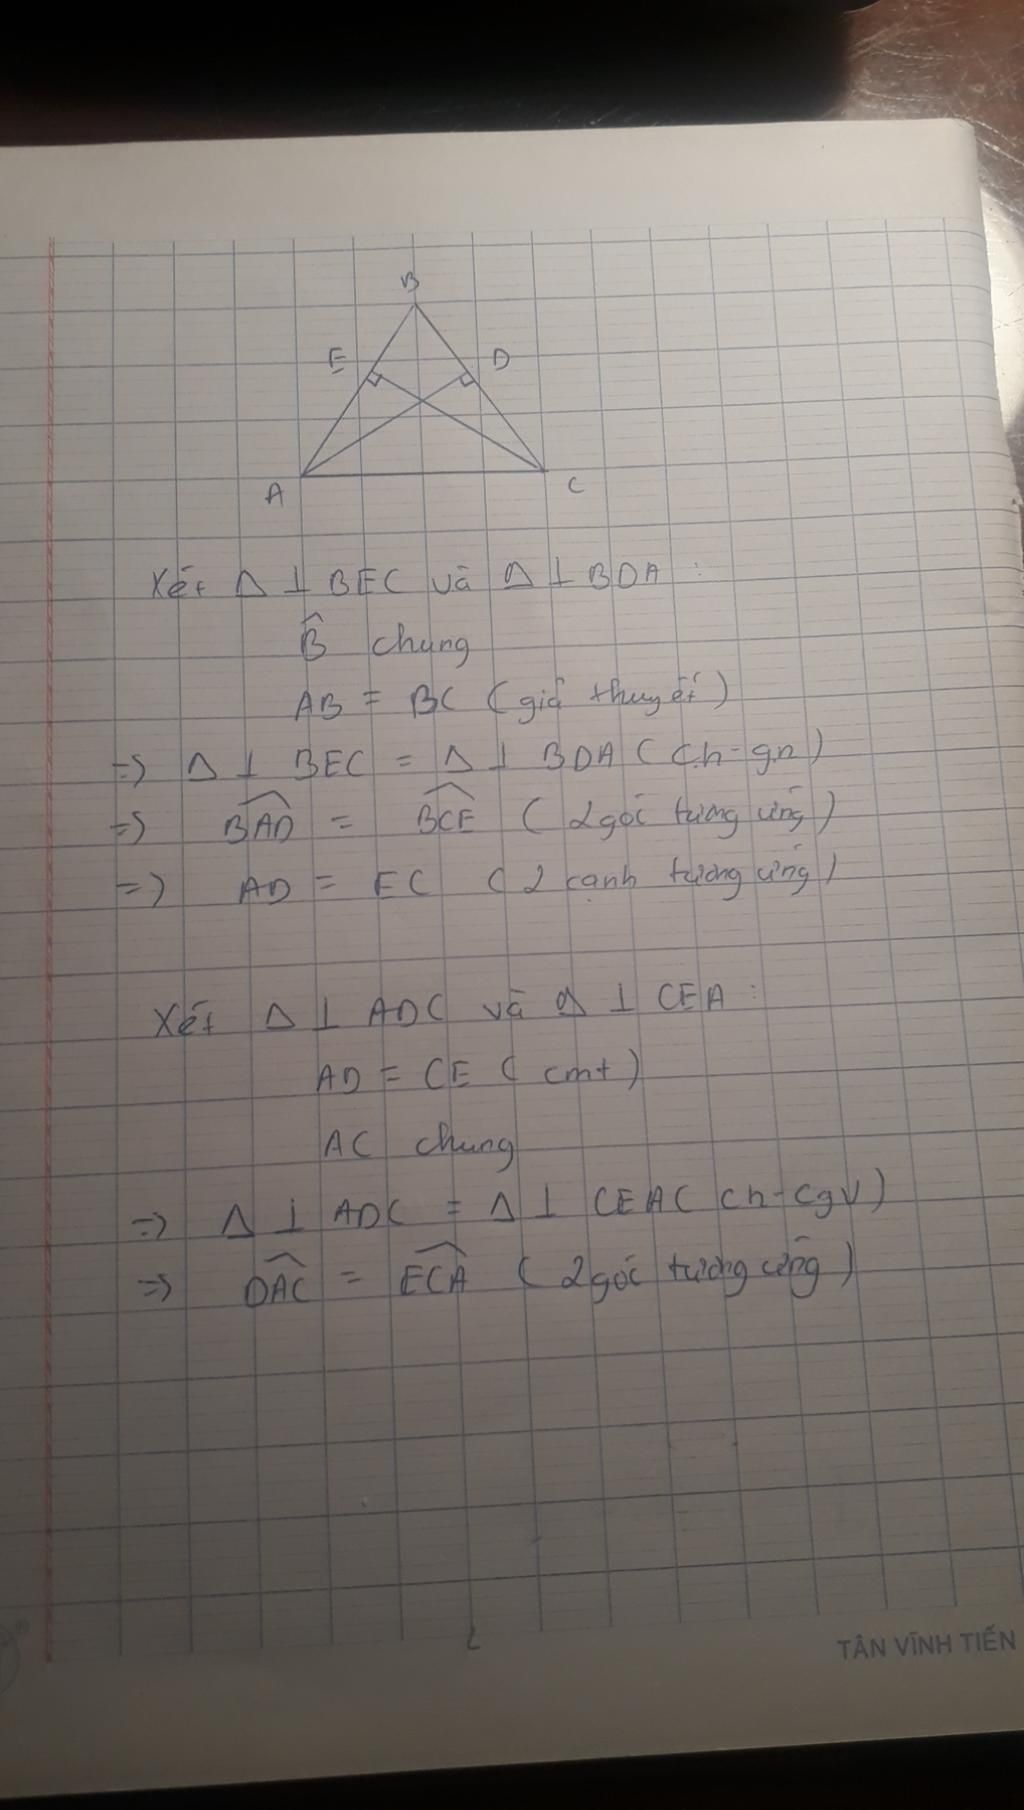 B
E
D
A
C
Xét Δ ⊥ BEC và Δ ⊥ BDA :
B̂ chung
AB = BC ( giả thuyết )
=> Δ ⊥ BEC = Δ ⊥ BDA ( ch - gn )
=> \widehat{BAD} = \widehat{BCE} ( 2 góc tương ứng )
=> AD = EC ( 2 cạnh tương ứng )
Xét Δ ⊥ ADC và Δ ⊥ CEA :
AD = CE ( cmt )
AC chung
=> Δ ⊥ ADC = Δ ⊥ CEA ( ch - cgv )
=> \widehat{DAC} = \widehat{ECA} ( 2 góc tương ứng )
TÂN VĨNH TIẾN